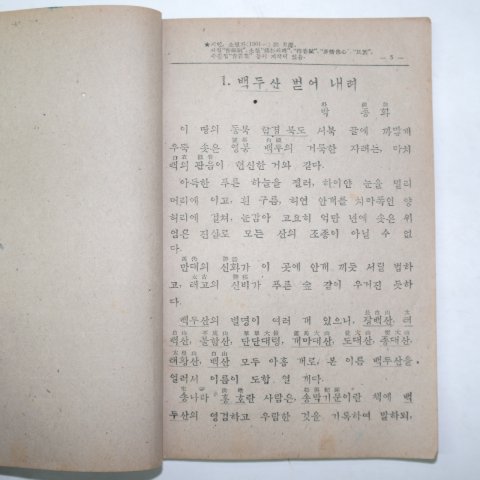 — 5 —
1. 백두산 벋어 내려
박 종 화
이 땅의 동북 함경 북도 서북 끝에 까맣게
우뚝 솟은 영봉 백두의 거룩한 자태는, 마치
백의 관음이 현신한 거와 같다.
아득한 푸른 하늘을 찔러, 하이얀 눈을 멀리
머리에 이고, 흰 구름, 허연 안개를 치마폭인 양
허리에 걸쳐, 눈감아 고요히 억만 년에 솟은 위
엄은 진실로 모든 산의 조종이 아닐 수 없
다.
만대의 신화가 이 곳에 안개 끼듯 서릴 법하
고, 태고의 신비가 푸른 숲 같이 우거진 듯하
다.
백두산의 별명이 여러 개 있으니, 장백산, 태
백산, 불함산, 단단대령, 개마대산, 도태산,
태황산, 백산 모두 아홉 개로, 본 이름 백두산을
얼러서 이름이 도합 열 개다.
송나라 홍호란 사람은, 송막기문이란 책에 백
두산의 영검하고 우람한 것을 기록하여 말하되,